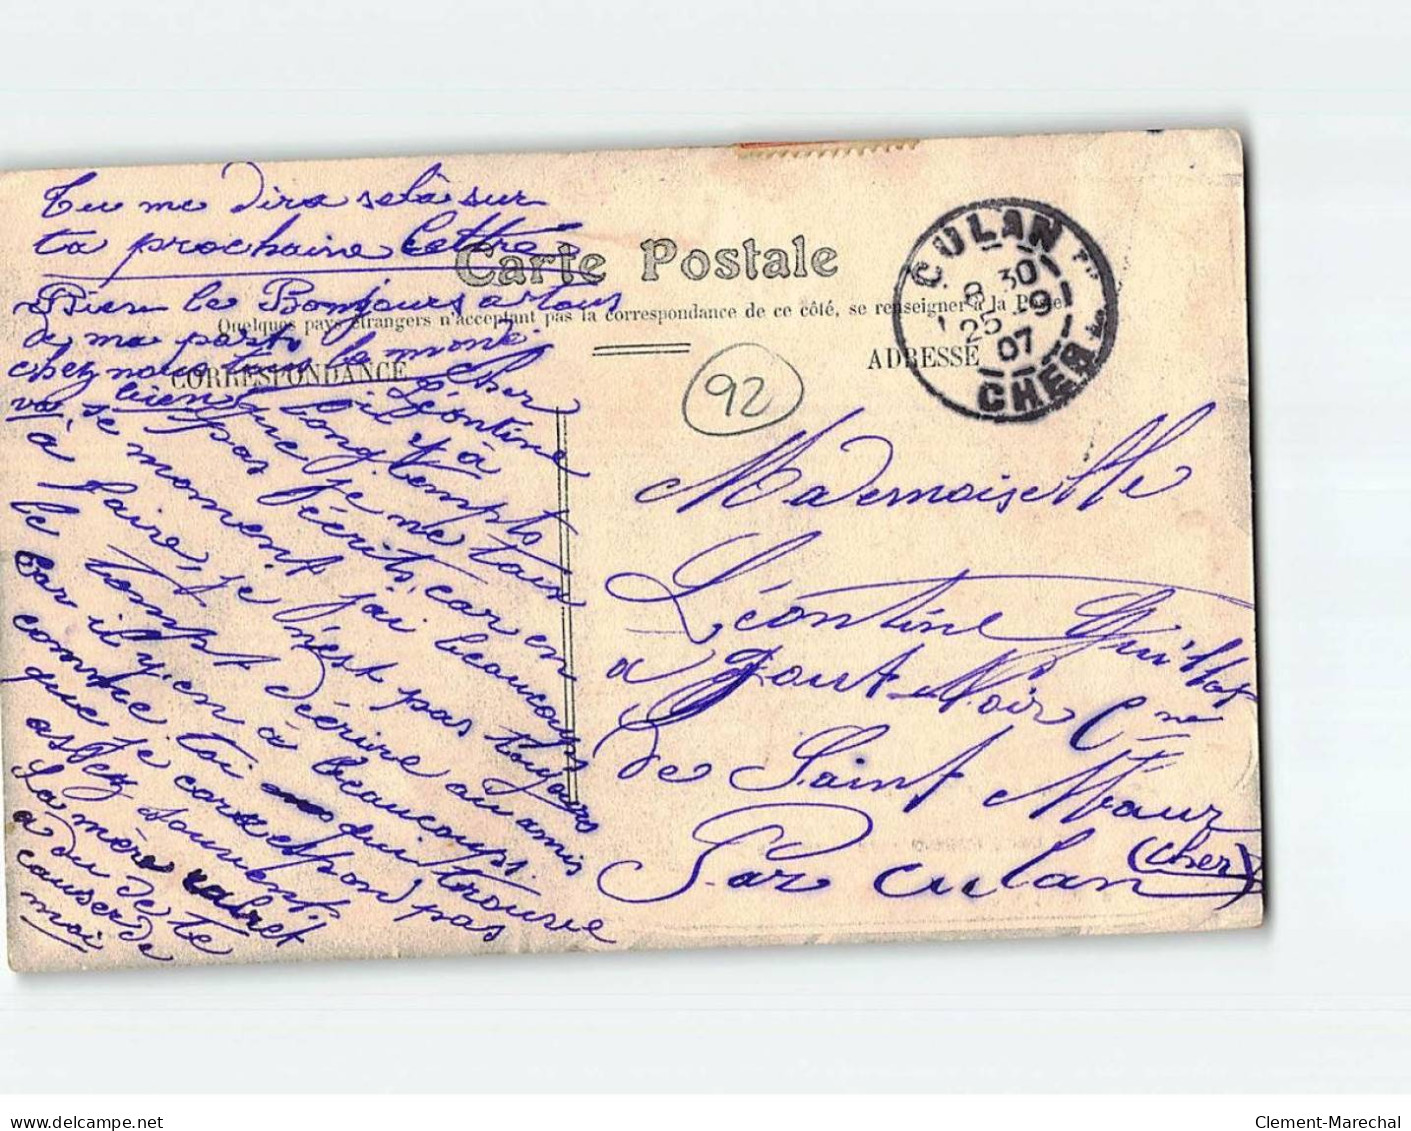 Tu me dira selà sur
ta prochaine lettre
Bien le Bonjours a tous
de ma part
chez nous tous le monde
va bien
Carte Postale
Quelques pays étrangers n'acceptant pas la correspondance de ce côté, se renseigner à la Poste
CORRESPONDANCE
ADRESSE
CULAN
8 30
25 -9
07
CHER
92
Cher Léontine
il y à
bien long temps
que je ne tais
pas l'écrits, car en
se moment j'ai beaucoups
à faire, je n'est pas toujours
le temps d'écrire au amis
car il y en à beaucoups.
comme toi qui trouve
que je correspond pas
assez souvent.
La mère
a du de te
causer de
moi
Mademoiselle
Léontine
a Gout Noir Cne
de Saint Maur
Par Culan (Cher)
Clement-Marechal